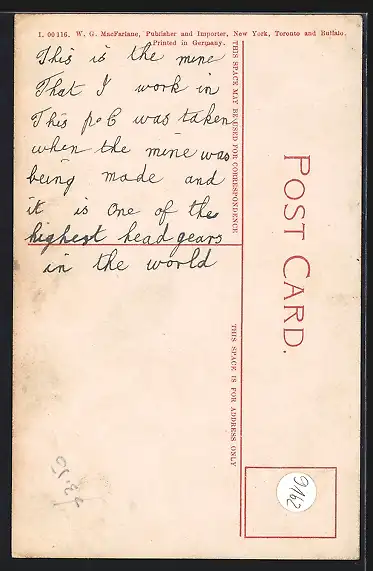 I. 00116. W. G. MacFarlane, Publisher and Importer, New York, Toronto and Buffalo.
Printed in Germany.
This is the mine
That I work in
This p.c was taken
when the mine was
being made and
it is one of the
highest headgears
in the world
THIS SPACE MAY BE USED FOR CORRESPONDENCE
THIS SPACE IS FOR ADDRESS ONLY
POST CARD.
9162